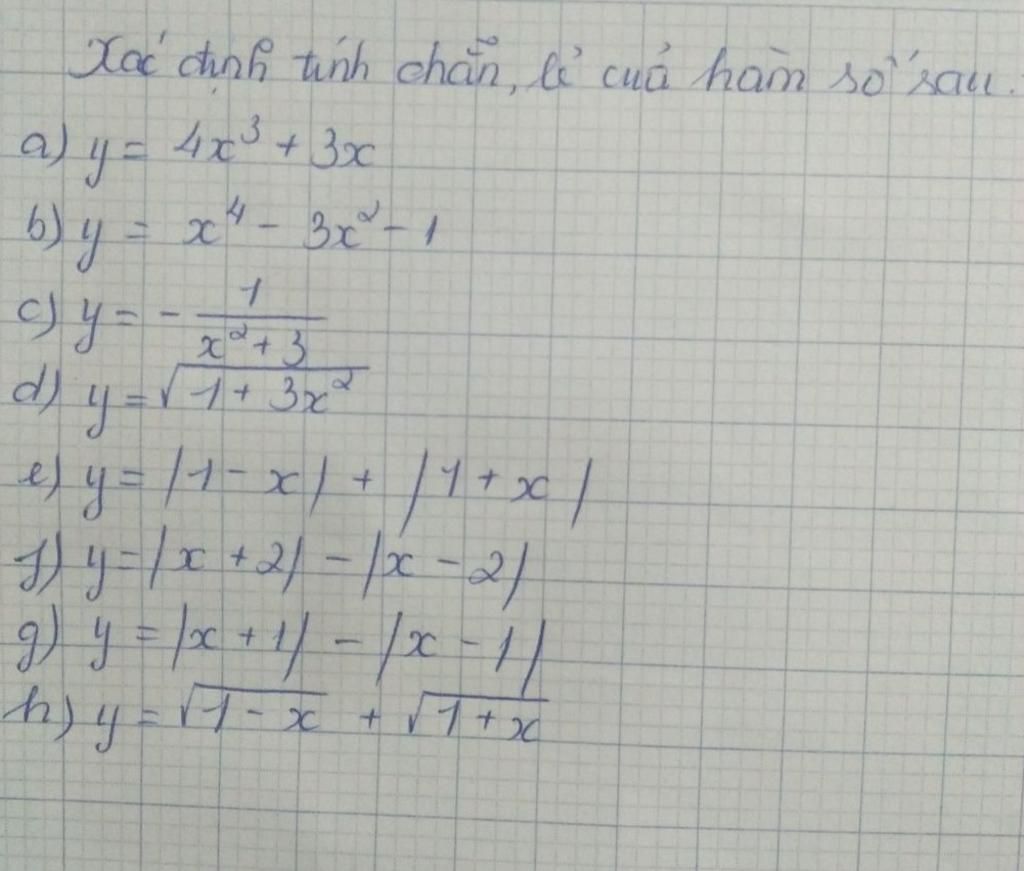 Xác định tính chẵn, lẻ của hàm số sau.
a) y = 4x³ + 3x
b) y = x⁴ - 3x² - 1
c) y = - 1/(x² + 3)
d) y = √(1 + 3x²)
e) y = |1 - x| + |1 + x|
f) y = |x + 2| - |x - 2|
g) y = |x + 1| - |x - 1|
h) y = √(1 - x) + √(1 + x)